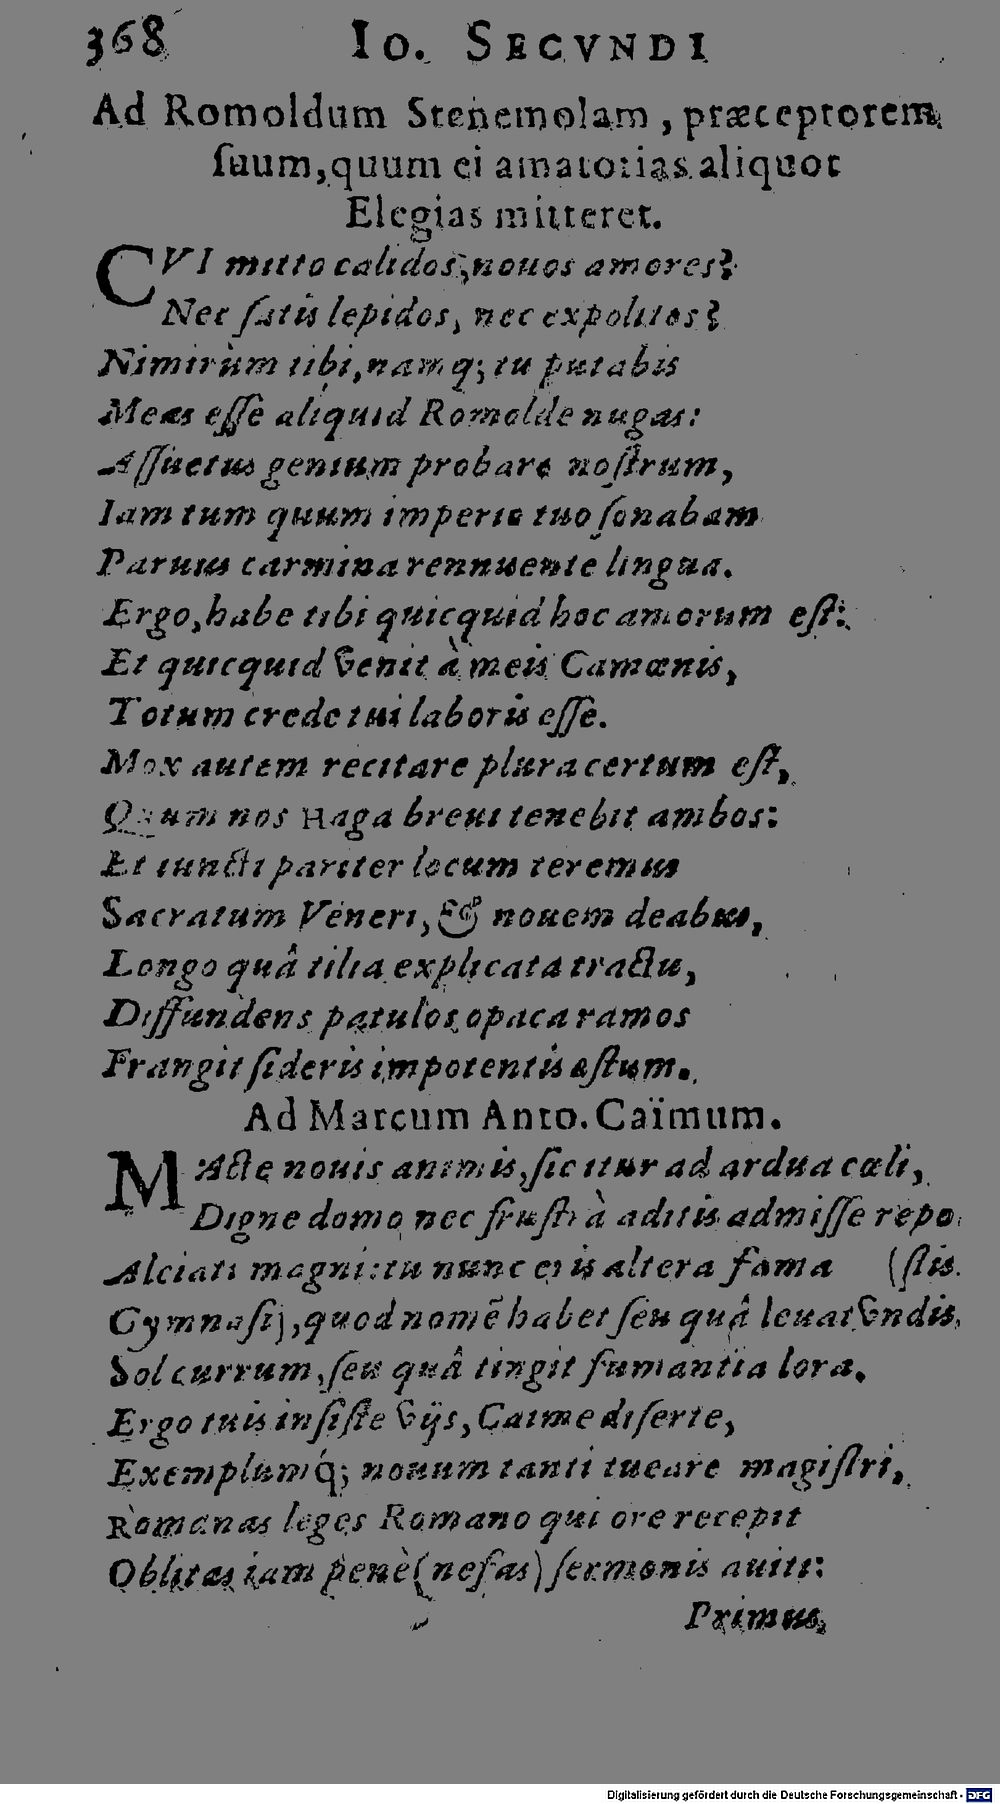 368 IO. SECVNDI
Ad Romoldum Stenemolam, præceptorem
ſuum, quum ei amatorias aliquot
Elegias mitteret.
CVI mitto calidos, nouos amores?
Nec ſatis lepidos, nec expolitos?
Nimirùm tibi, namq; tu putabis
Meas eſſe aliquid Romolde nugas:
Aſſuetus genium probare noſtrum,
Iam tum quum imperio tuo ſonabam
Paruus carmina rennuente lingua.
Ergo, habe tibi quicquid hoc amorum eſt:
Et quicquid venit à meis Camœnis,
Totum crede tui laboris eſſe.
Mox autem recitare plura certum eſt,
Quum nos Haga breui tenebit ambos:
Et iuncti pariter locum teremus
Sacratum Veneri, & nouem deabus,
Longo quâ tilia explicata tractu,
Diffundens patulos opaca ramos
Frangit ſideris impotentis æſtum.
Ad Marcum Anto. Caïmum.
MActe nouis animis, ſic itur ad ardua cœli,
Digne domo nec fruſtrà aditis admiſſe repo
Alciati magni: tu nunc eris altera fama (ſtis.
Gymnaſij, quod nomẽ habet ſeu quâ leuat vndis,
Sol currum, ſeu quâ tingit fumantia lora.
Ergo tuis inſiſte vijs, Caime diſerte,
Exemplumq́; nouum tanti tueare magiſtri,
Romanas leges Romano qui ore recepit
Oblitas iam penè (nefas) ſermonis auiti:
Primus,
Digitalisierung gefördert durch die Deutsche Forschungsgemeinschaft - DFG